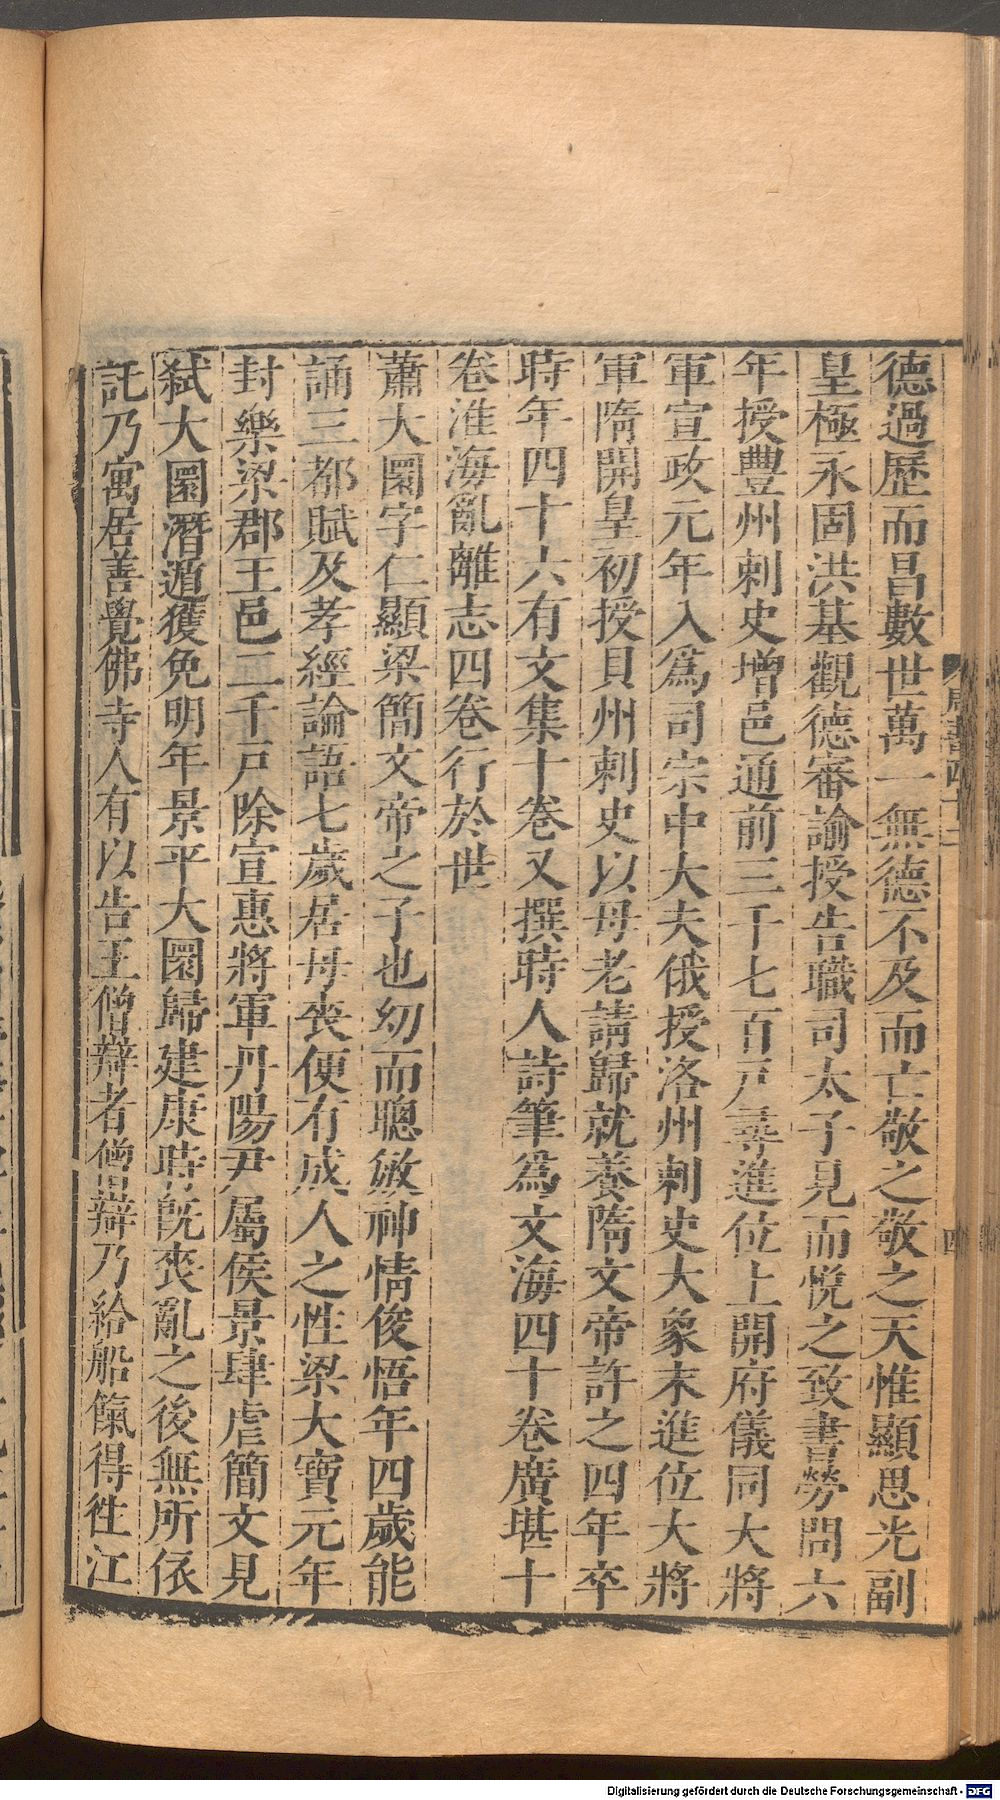 德過歷而昌數世萬一無德不及而亡敬之敬之天惟顯思光副
皇極永固洪基觀德審諭授告職司太子見而悅之致書勞問六
年授豐州刺史增邑通前三千七百戶尋進位上開府儀同大將
軍宣政元年入爲司宗中大夫俄授洛州刺史大象末進位大將
軍隋開皇初授貝州刺史以母老請歸就養隋文帝許之四年卒
時年四十六有文集十卷又撰時人詩筆爲文海四十卷廣堪十
卷淮海亂離志四卷行於世
蕭大圜字仁顯梁簡文帝之子也幼而聰敏神情俊悟年四歲能
誦三都賦及孝經論語七歲居母喪便有成人之性梁大寶元年
封樂梁郡王邑二千戶除宣惠將軍丹陽尹屬侯景肆虐簡文見
弑大圜潛遁獲免明年景平大圜歸建康時旣喪亂之後無所依
託乃寓居善覺佛寺人有以告王僧辯者僧辯乃給船餼得往江
四
Digitalisierung gefördert durch die Deutsche Forschungsgemeinschaft - DFG